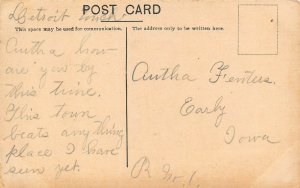 POST CARD
Detroit
This space may be used for communication.
The address only to be written here.
Autha how
are you by
this time.
This town
beats any thing
place I have
seen yet.
Autha Fenters
Early
Iowa
R No. 1